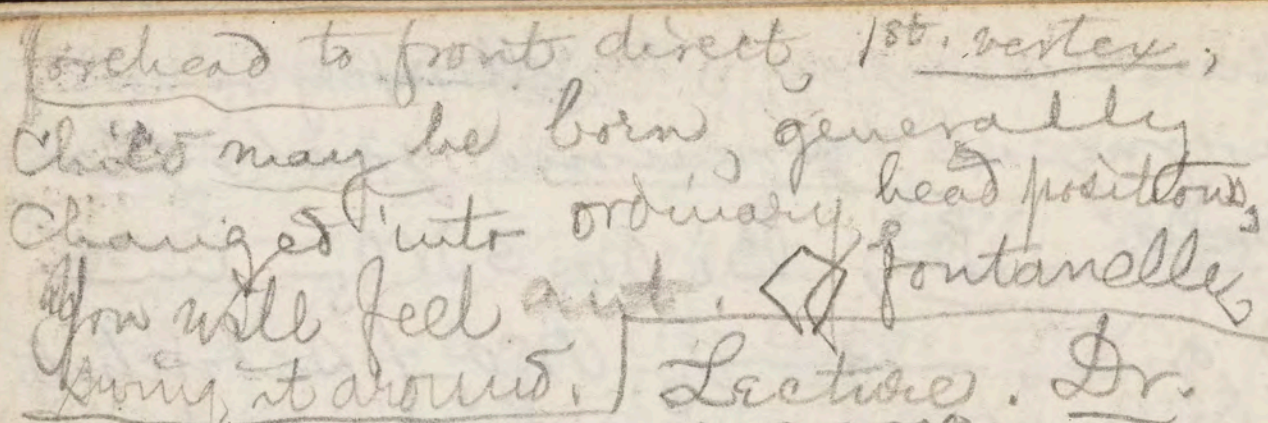 forehead to front direct, 1st. vertex,
Child may be born, generally
changed into ordinary head positions,
You will feel ant. fontanelle
Swing it around. Lecture. Dr.